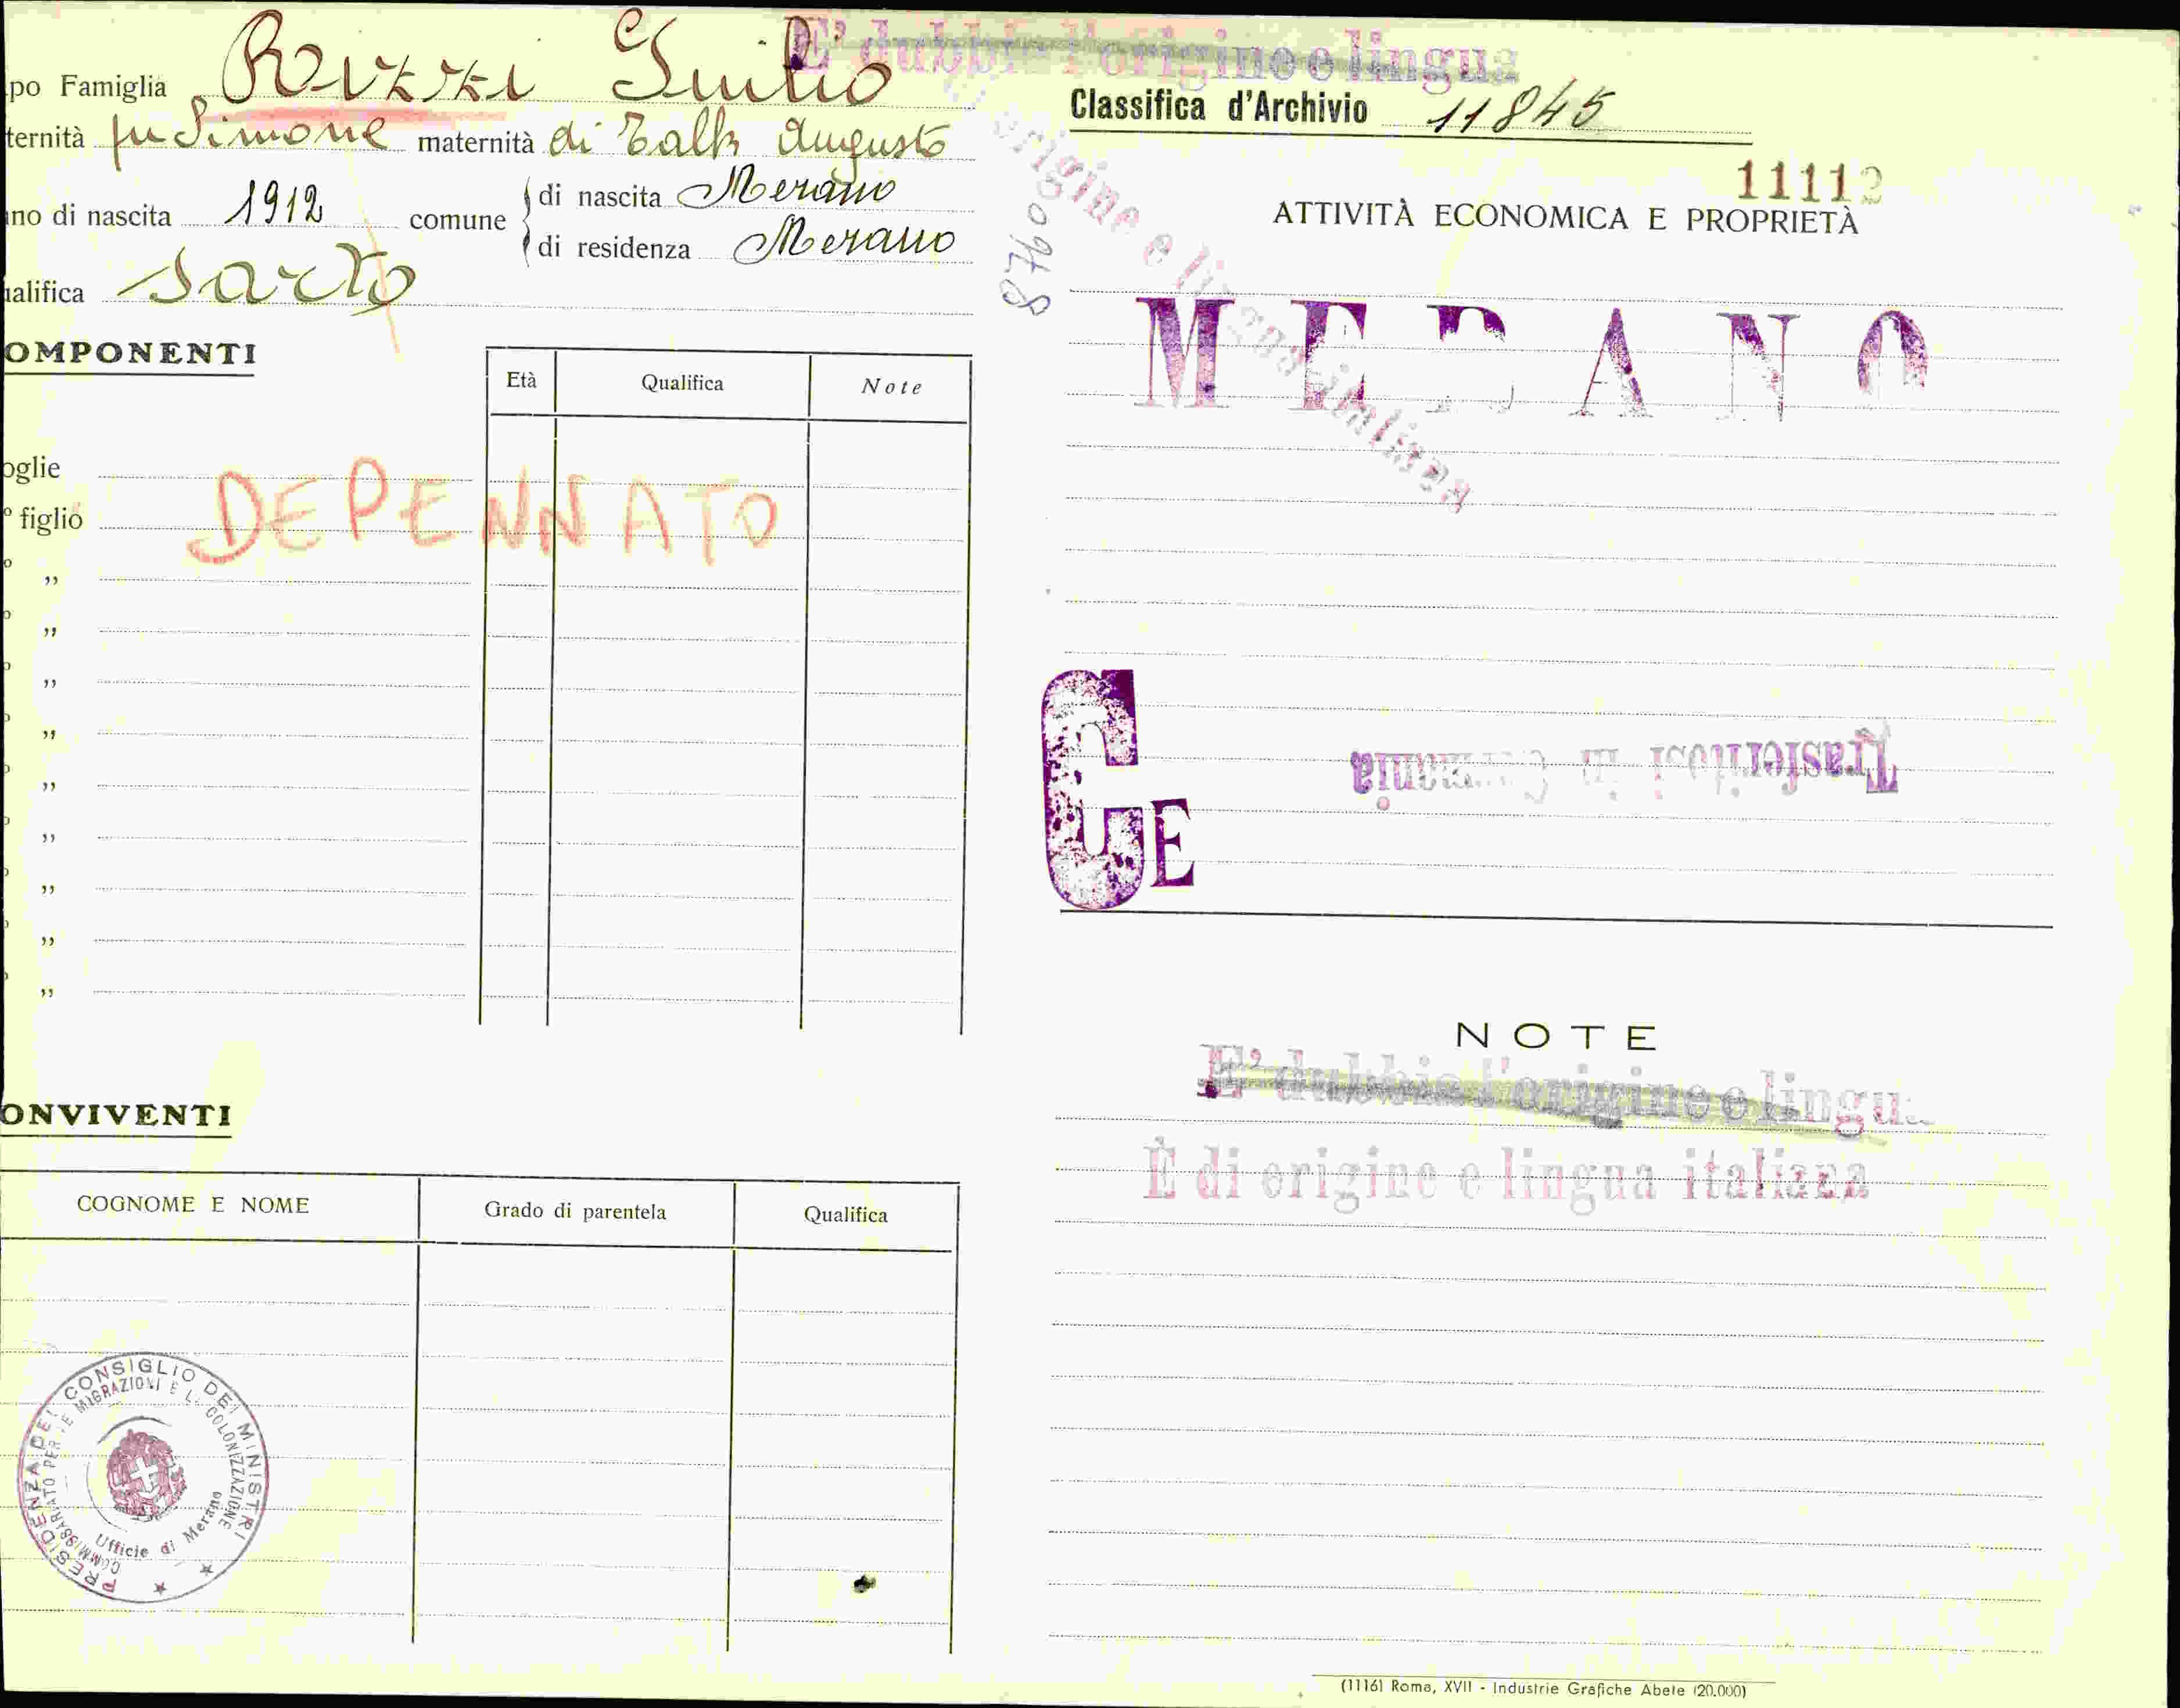 po Famiglia Rizzi Giulio
ternità fu Simone maternità di Augusto
no di nascita 1912 comune di nascita Merano
di residenza Merano
alifica sarto
OMPONENTI
Età Qualifica Note
oglie
° figlio
DEPENNATO
„
„
„
„
„
„
„
„
„
ONVIVENTI
COGNOME E NOME Grado di parentela Qualifica
PRESIDENZA DEL CONSIGLIO DEI MINISTRI
COMMISSARIATO PER LE MIGRAZIONI E LA COLONIZZAZIONE
Ufficio di Merano
E' dubbia l'origine e lingua
Classifica d'Archivio 11845
11112
87609
origine e lingua italiana
ATTIVITÀ ECONOMICA E PROPRIETÀ
MERANO
Trasferitosi in Germania
G E
NOTE
E' dubbia l'origine e lingua
È di origine e lingua italiana
(1116) Roma, XVII - Industrie Grafiche Abete (20.000)